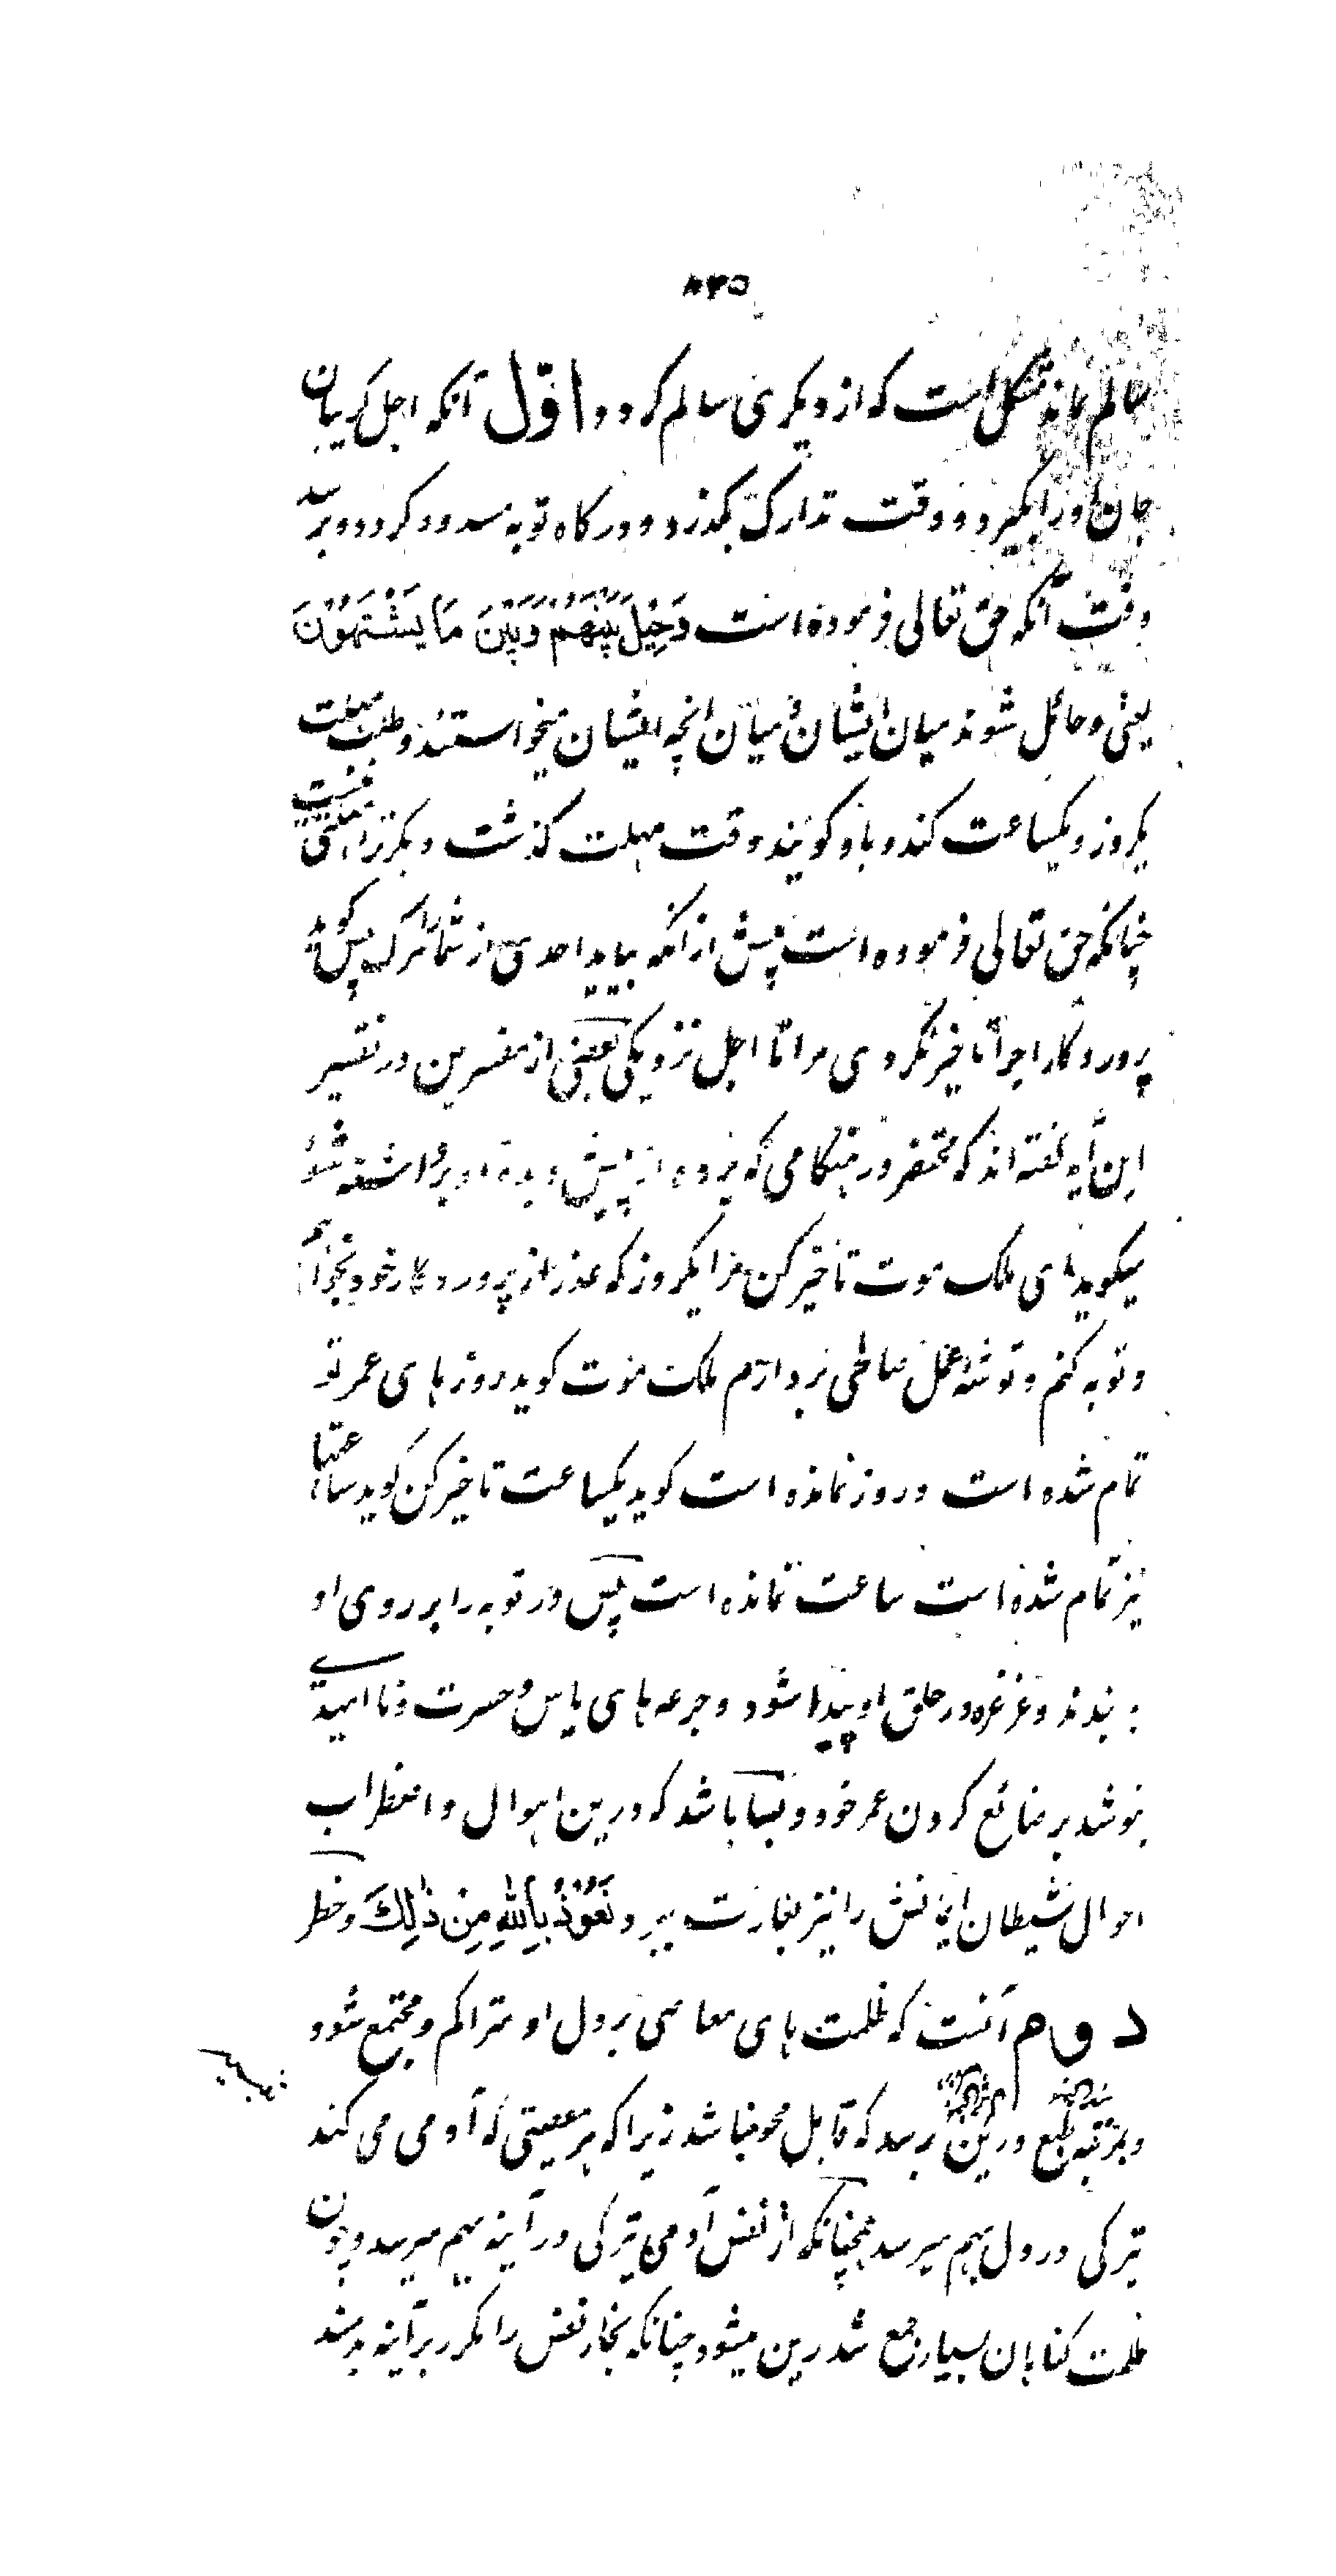 ۸۳۵
سالم ماند مشکل است که از دیگری سالم گردد اول آنکه اجل گریبان
جان او را بگیرد و وقت تدارک بگذرد و درگاه توبه مسدود گردد و برسد
وقت آنکه حق تعالی فرموده است وَحِيلَ بَيْنَهُمْ وَبَيْنَ مَا يَشْتَهُونَ
یعنی و حائل شوند میان ایشان و میان انچه ایشان میخواستند و طلب مهلت
یکروز و یکساعت کند و باو گویند وقت مهلت گذشت دیگر ترا مهلتی نیست
چنانکه حق تعالی فرموده است پیش از آنکه بیاید احدی از شما را مرگ پس گوید
پروردگارا چرا تاخیر نکردی مرا تا اجل نزدیکی بعضی از مفسرین در تفسیر
این آیه گفته اند که محتضر در هنگامی که پرده از پیش دیده او برداشته شد
میگوید ای ملک موت تاخیر کن مرا یکروز که عذر از پروردگار خود بخواهم
و توبه کنم و توشه عمل صالحی بردارم ملک موت گوید روزهای عمر تو
تمام شده است و روز نمانده است گوید یکساعت تاخیر کن گوید ساعتها
نیز تمام شده است ساعت نمانده است پس در توبه را بر روی او
به بندند و غرغره در حلق او پیدا شود و جرعه های یاس و حسرت و ناامیدی
بنوشد بر ضائع کردن عمر خود و بسا باشد که درین اهوال و اضطراب
احوال شیطان ایمانش را نیز بغارت ببرد نَعُوذُ بِاللهِ مِنْ ذٰلِكَ و خطر
دوم آنست که ظلمت های معاصی بر دل او متراکم و مجتمع شود
و بمرتبه طبع و رین برسد که قابل محو نباشد زیرا که هر معصیتی که آدمی می کند
تیرگی در دل بهم میرسد همچنانکه از نفس آدمی تیرگی در آینه بهم میرسد و چون
ظلمت گناهان بسیار جمع شد رین میشود چنانکه بخار نفس را مکرر بر آینه بدمند